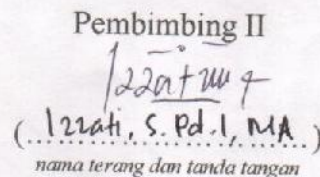 Pembimbing II
(Izzati, S.Pd.I, MA)
nama terang dan tanda tangan